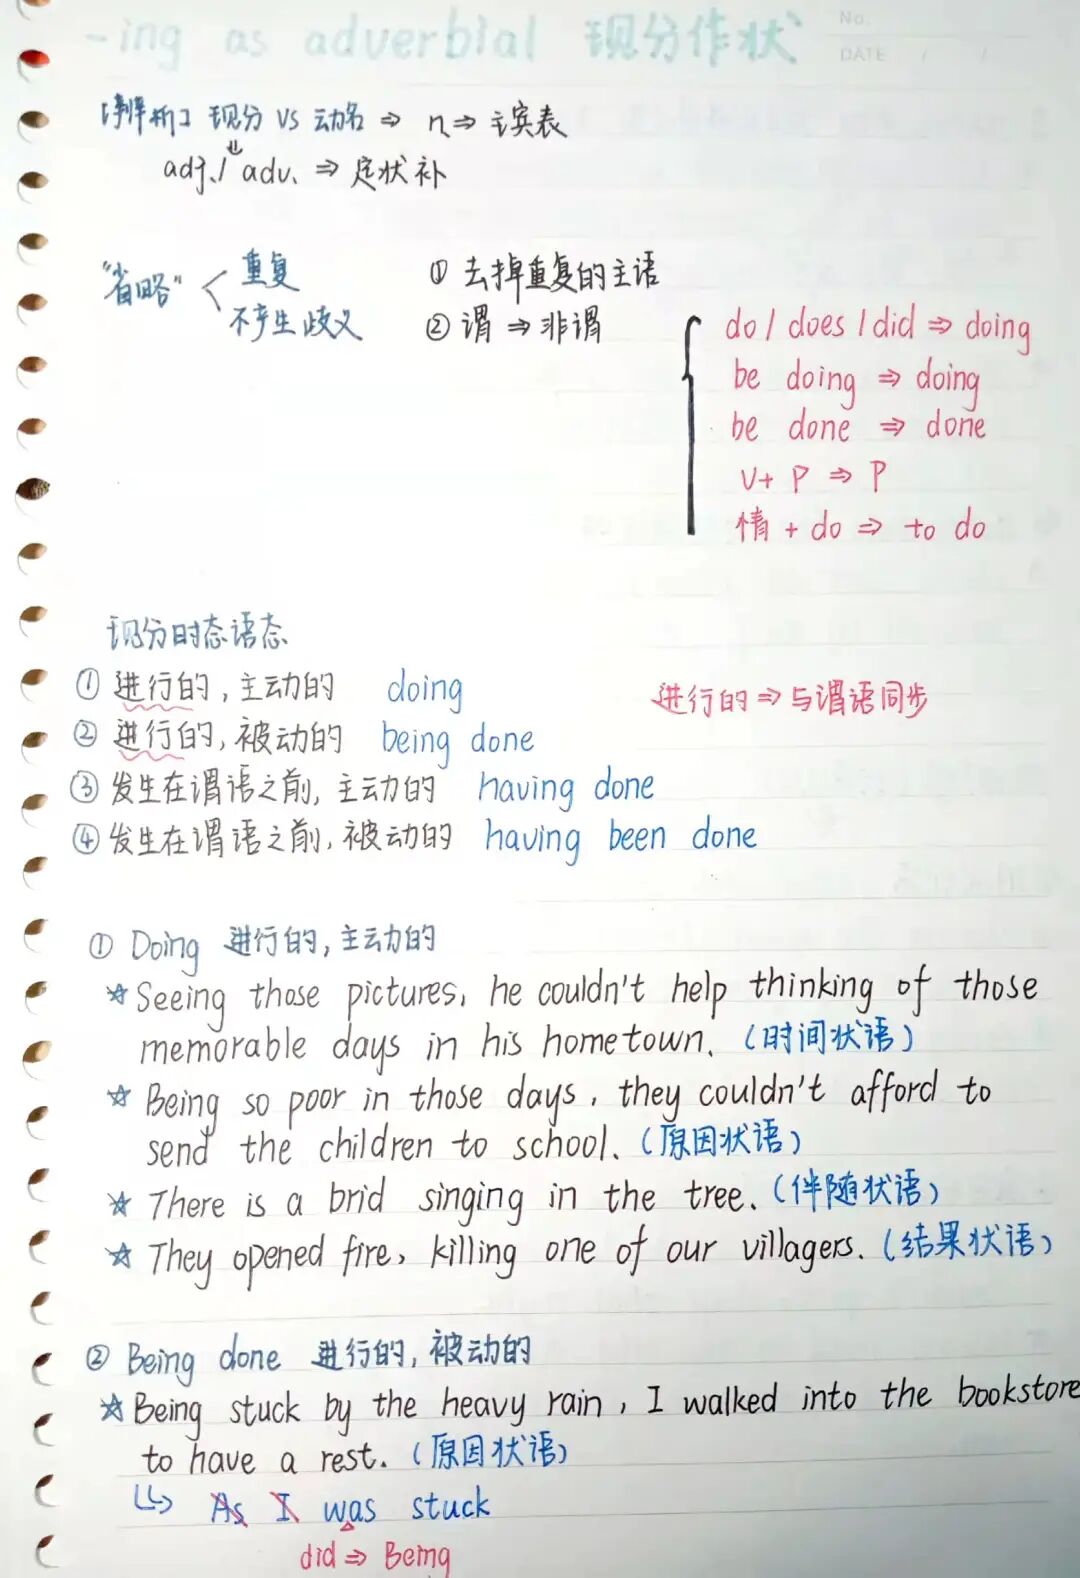 -ing as adverbial 现分作状
No.
DATE / /
[辨析] 现分 VS 动名 ⇒ n ⇒ 主宾表
⇓
adj. / adv. ⇒ 定状补
"省略" < 重复 ① 去掉重复的主语
不产生歧义 ② 谓 ⇒ 非谓
do / does / did ⇒ doing
be doing ⇒ doing
be done ⇒ done
V+ P ⇒ P
情 + do ⇒ to do
现分时态语态
① 进行的, 主动的 doing 进行的 ⇒ 与谓语同步
② 进行的, 被动的 being done
③ 发生在谓语之前, 主动的 having done
④ 发生在谓语之前, 被动的 having been done
① Doing 进行的, 主动的
☆ Seeing those pictures, he couldn't help thinking of those
memorable days in his hometown. (时间状语)
☆ Being so poor in those days, they couldn't afford to
send the children to school. (原因状语)
☆ There is a brid singing in the tree. (伴随状语)
☆ They opened fire, killing one of our villagers. (结果状语)
② Being done 进行的, 被动的
☆ Being stuck by the heavy rain, I walked into the bookstore
to have a rest. (原因状语)
As I was stuck
did ⇒ Being